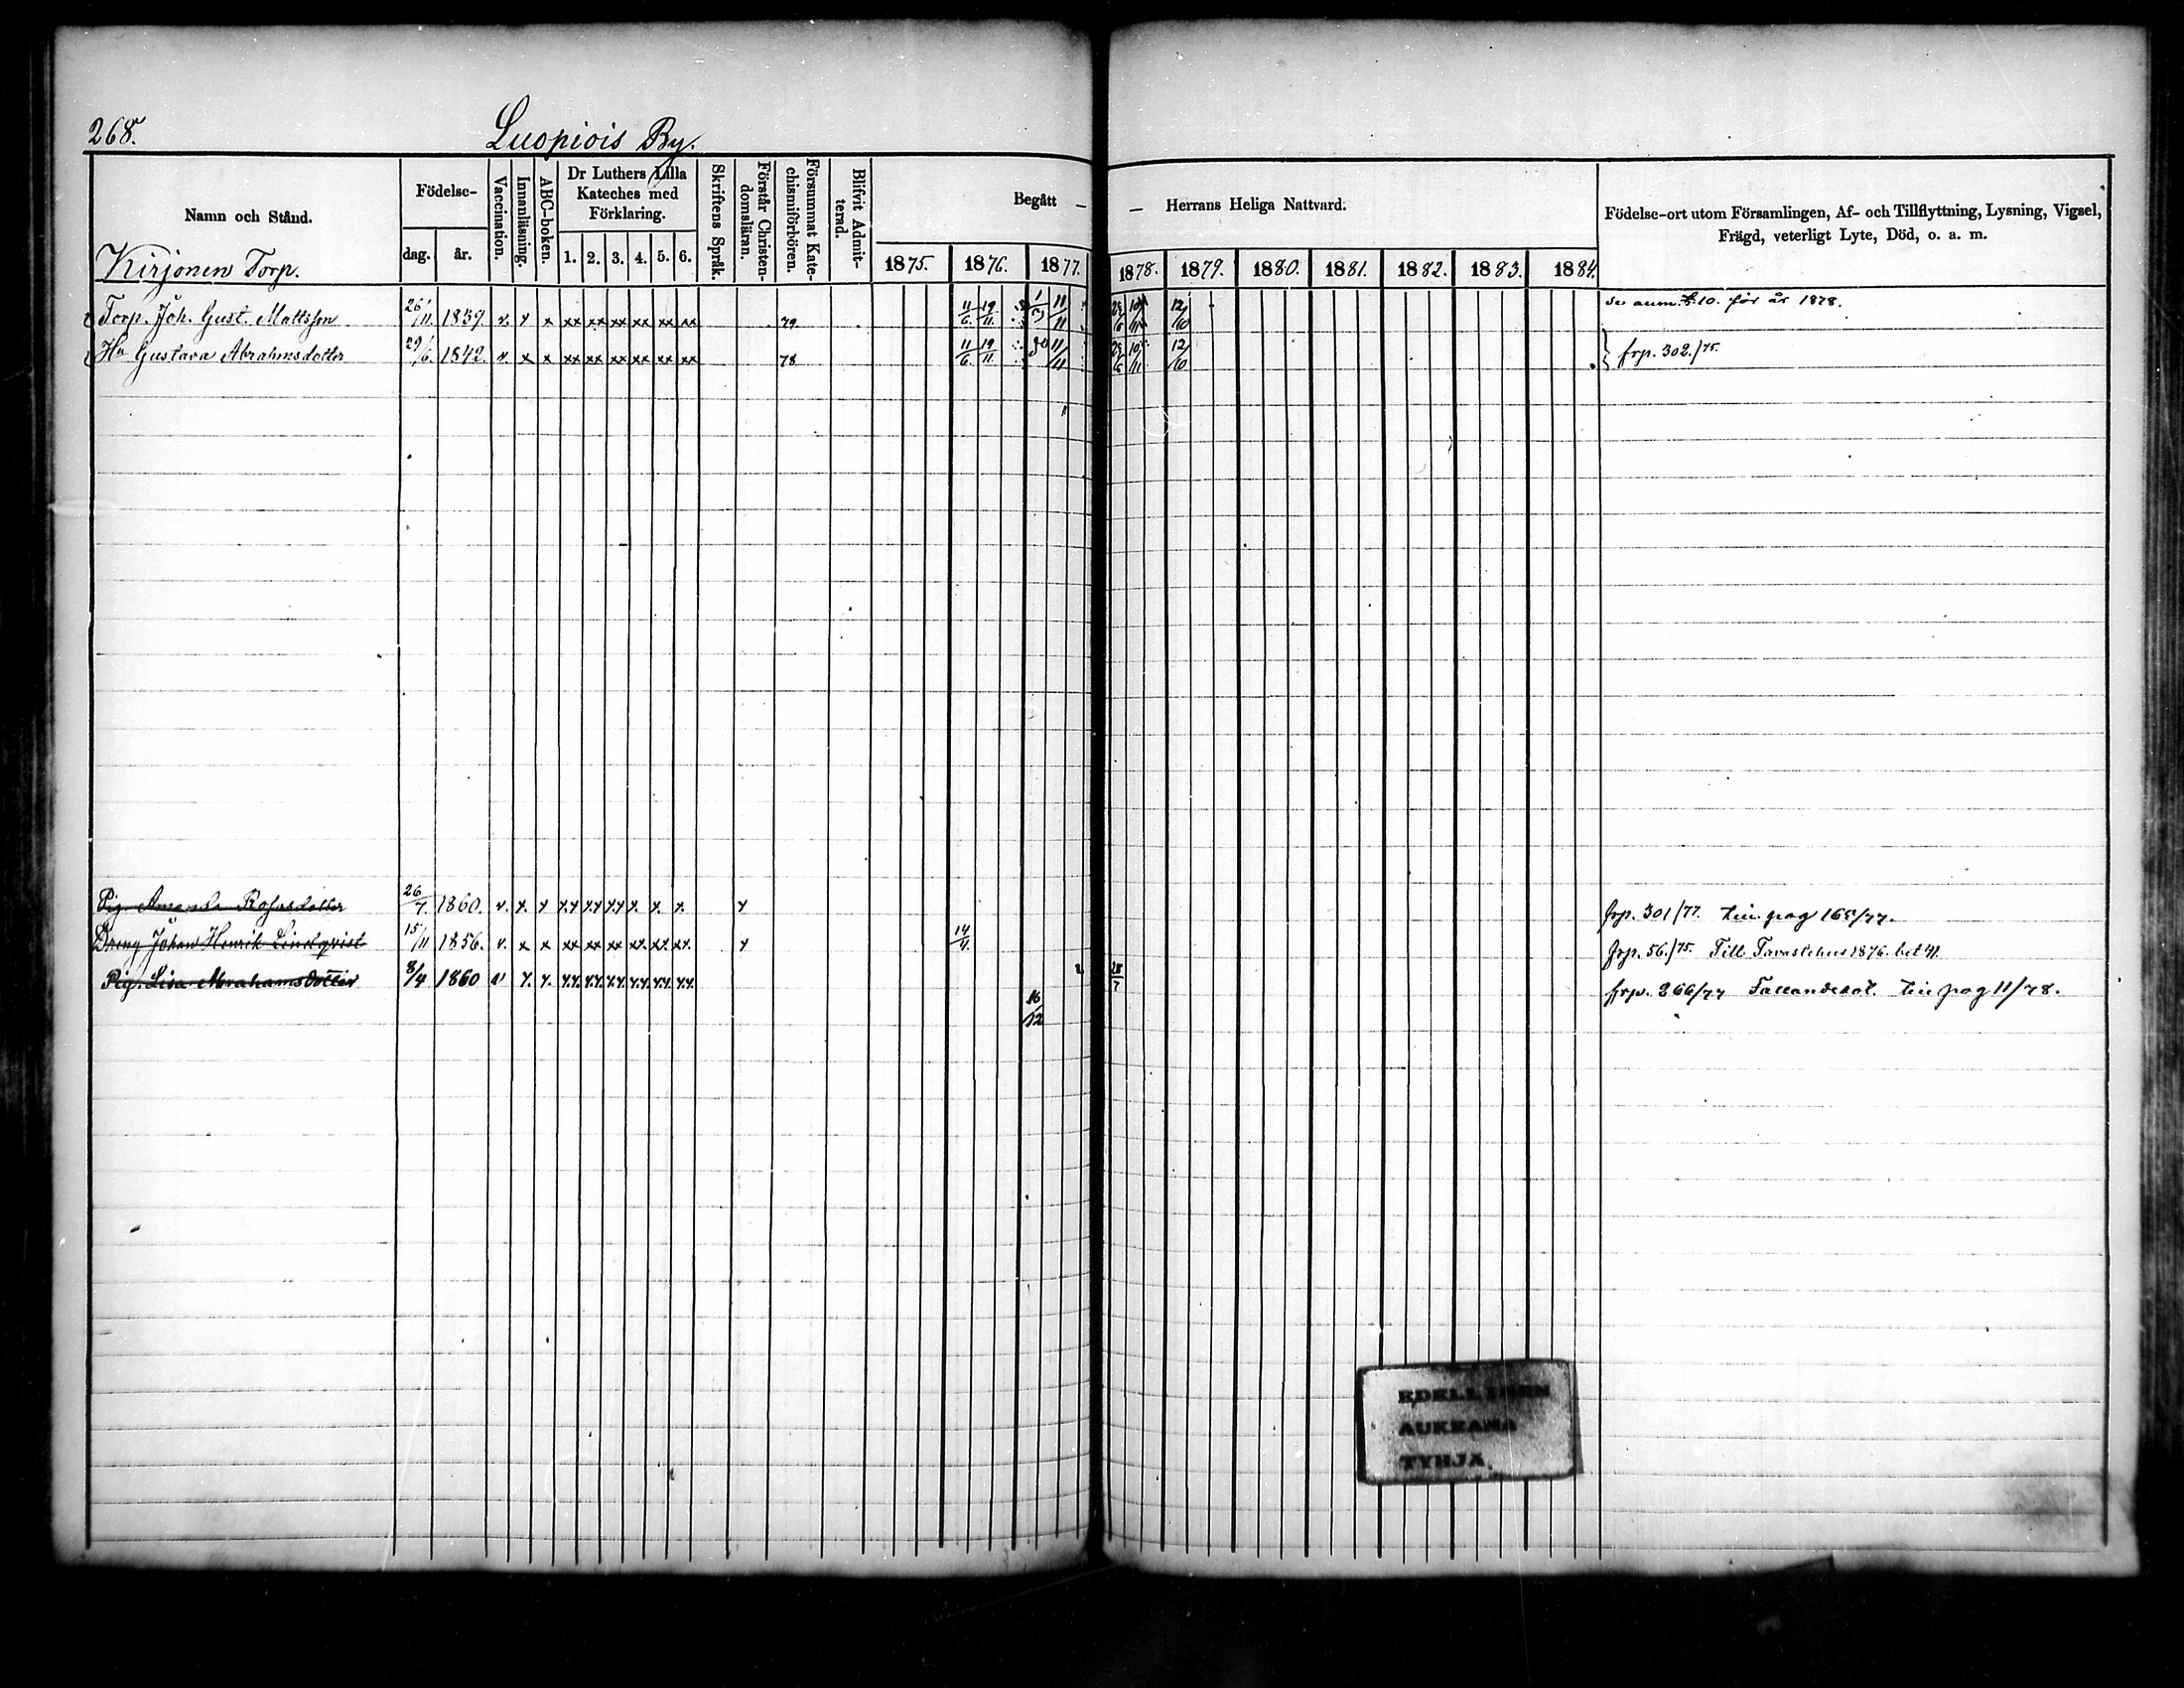 268.
Luopiois By.
Namn och Stånd.
Kirjonen Torp.
Födelse-
dag. år.
Vaccination.
Innanläsning.
ABC-boken.
Dr Luthers Lilla
Kateches med
Förklaring.
1. 2. 3. 4. 5. 6.
Skriftens Språk.
Förstår Christen-
domsläran.
Försummat Kate-
chismiförhören.
Blifvit Admit-
terad.
Begått —
— Herrans Heliga Nattvard.
1875. 1876. 1877. 1878. 1879. 1880. 1881. 1882. 1883. 1884.
Födelse-ort utom Församlingen, Af- och Tillflyttning, Lysning, Vigsel,
Frägd, veterligt Lyte, Död, o. a. m.
Torp. Joh. Gust. Mattsson 26/11 1839. v. x x xx xx xx xx xx xx 79 11/6. 19/11. 1/3 11/11 10/11 12/10 10. för år 1878.
Hu Gustava Abrahmsdotter 29/6. 1842. v. x x xx xx xx xx xx xx 78 11/6. 19/11. 11/11 10/11 12/10 frp. 302./75.
Pig. Amanda 26/7. 1860. v. x. x x.x x.x x.x x. x. x. x frp. 301/77. pag 165/77.
Dreng Johan Henrik Lindqvist 15/11 1856. v. x x xx xx xx xx. xx. xx. x 14/4. frp. 56./75. Till Tavastehus 1876. bet 41.
Pig. Lisa Abrahamsdotter 8/4 1860 v x. x. x.x. x.x. x.x. x.x. x.x. x.x. 16/12 28/7 frp. 266/77 pag 11/78.
EDELLINEN
AUKEAMA
TYHJÄ